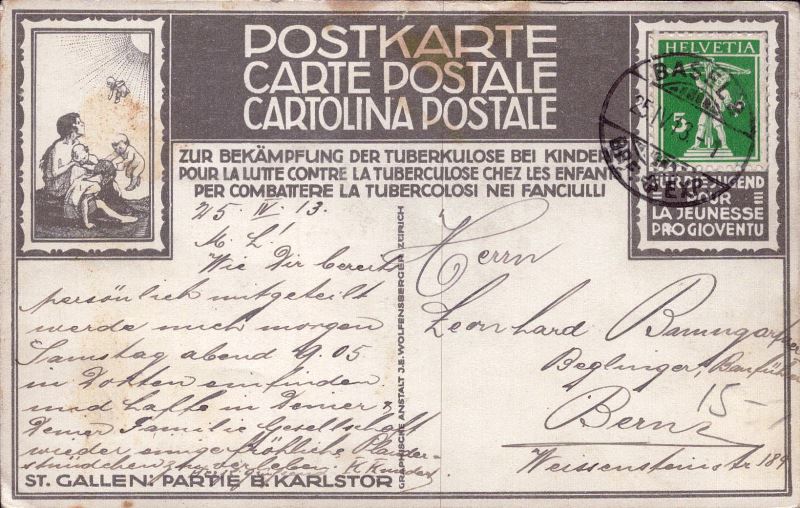 POSTKARTE
CARTE POSTALE
CARTOLINA POSTALE
ZUR BEKÄMPFUNG DER TUBERKULOSE BEI KINDER
POUR LA LUTTE CONTRE LA TUBERCULOSE CHEZ LES ENFANT
PER COMBATTERE LA TUBERCOLOSI NEI FANCIULLI
HELVETIA
5
BASEL 2
25.IV.13
BRF. EXP.
JUGEND
POUR
LA JEUNESSE
PRO GIOVENTU
25. IV. 13.
M. L!
Wie Dir bereits
persönlich mitgeteilt
werde mich morgen
Samstag abend 9.05
in
einfinden
und hoffe in Deiner &
Deiner Familie Gesellschaft
wieder einige fröhliche Plauder-
stündchen
ST. GALLEN: PARTIE B. KARLSTOR
GRAPHISCHE ANSTALT J.E. WOLFENSBERGER ZÜRICH
Herrn
Leonhard Baumgartner
Beglinger,
Bern
15-
Weissensteinstr 189